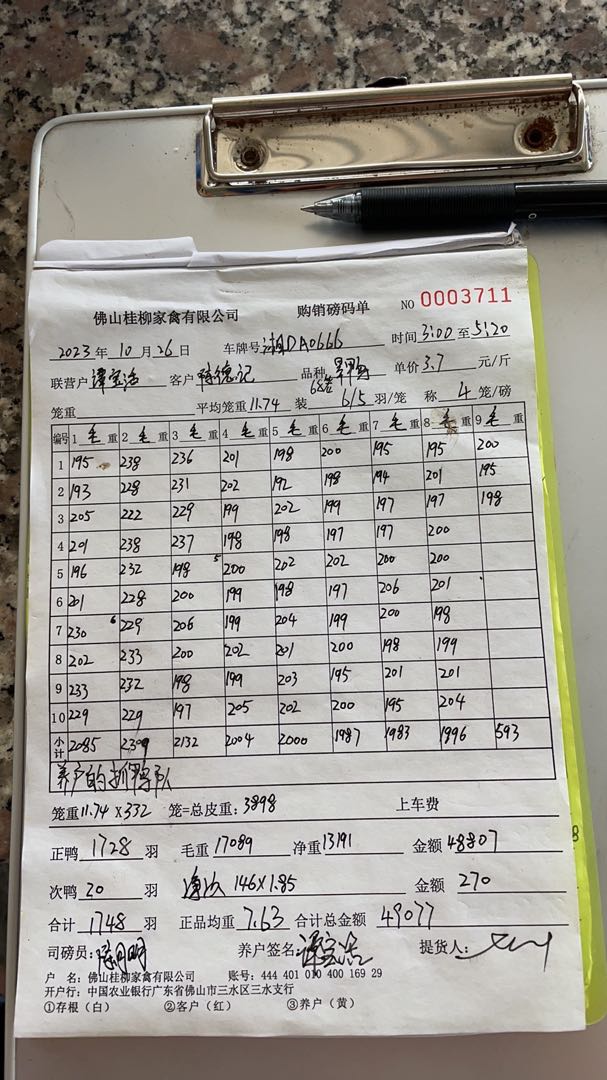 佛山桂柳家禽有限公司 购销磅码单 NO 0003711
2023 年 10 月 26 日 车牌号 湘DA0666 时间 3:00 至 5:20
联营户 谭宝浩 客户 陈德记 品种 单价 3.7 元/斤
68岁
笼重 平均笼重 11.74 装 6/5 羽/笼 称 4 笼/磅
编号 1 毛 重 2 毛 重 3 毛 重 4 毛 重 5 毛 重 6 毛 重 7 毛 重 8 毛 重 9 毛 重
1 195 238 236 201 198 200 195 195 200
2 193 228 231 202 192 198 194 201 195
3 205 222 229 199 202 199 197 197 198
4 201 238 237 198 198 197 197 200
5 196 232 198 5 200 202 202 200 200
6 201 228 200 199 198 197 206 201
7 230 6 229 206 199 204 199 200 198
8 202 233 200 202 201 200 198 199
9 233 232 198 199 203 195 201 201
10 229 229 197 205 202 200 195 204
小计 2085 2309 2132 2004 2000 1987 1983 1996 593
养户的抓鸭队
笼重 11.74 × 332 笼=总皮重: 3898 上车费
正鸭 1728 羽 毛重 17089 净重 13191 金额 48807
次鸭 20 羽 146×1.85 金额 270
合计 1748 羽 正品均重 7.63 合计总金额 49077
司磅员: 养户签名: 谭宝浩 提货人:
户 名: 佛山桂柳家禽有限公司 账号: 444 401 010 400 169 29
开户行: 中国农业银行广东省佛山市三水区三水支行
①存根（白） ②客户（红） ③养户（黄）